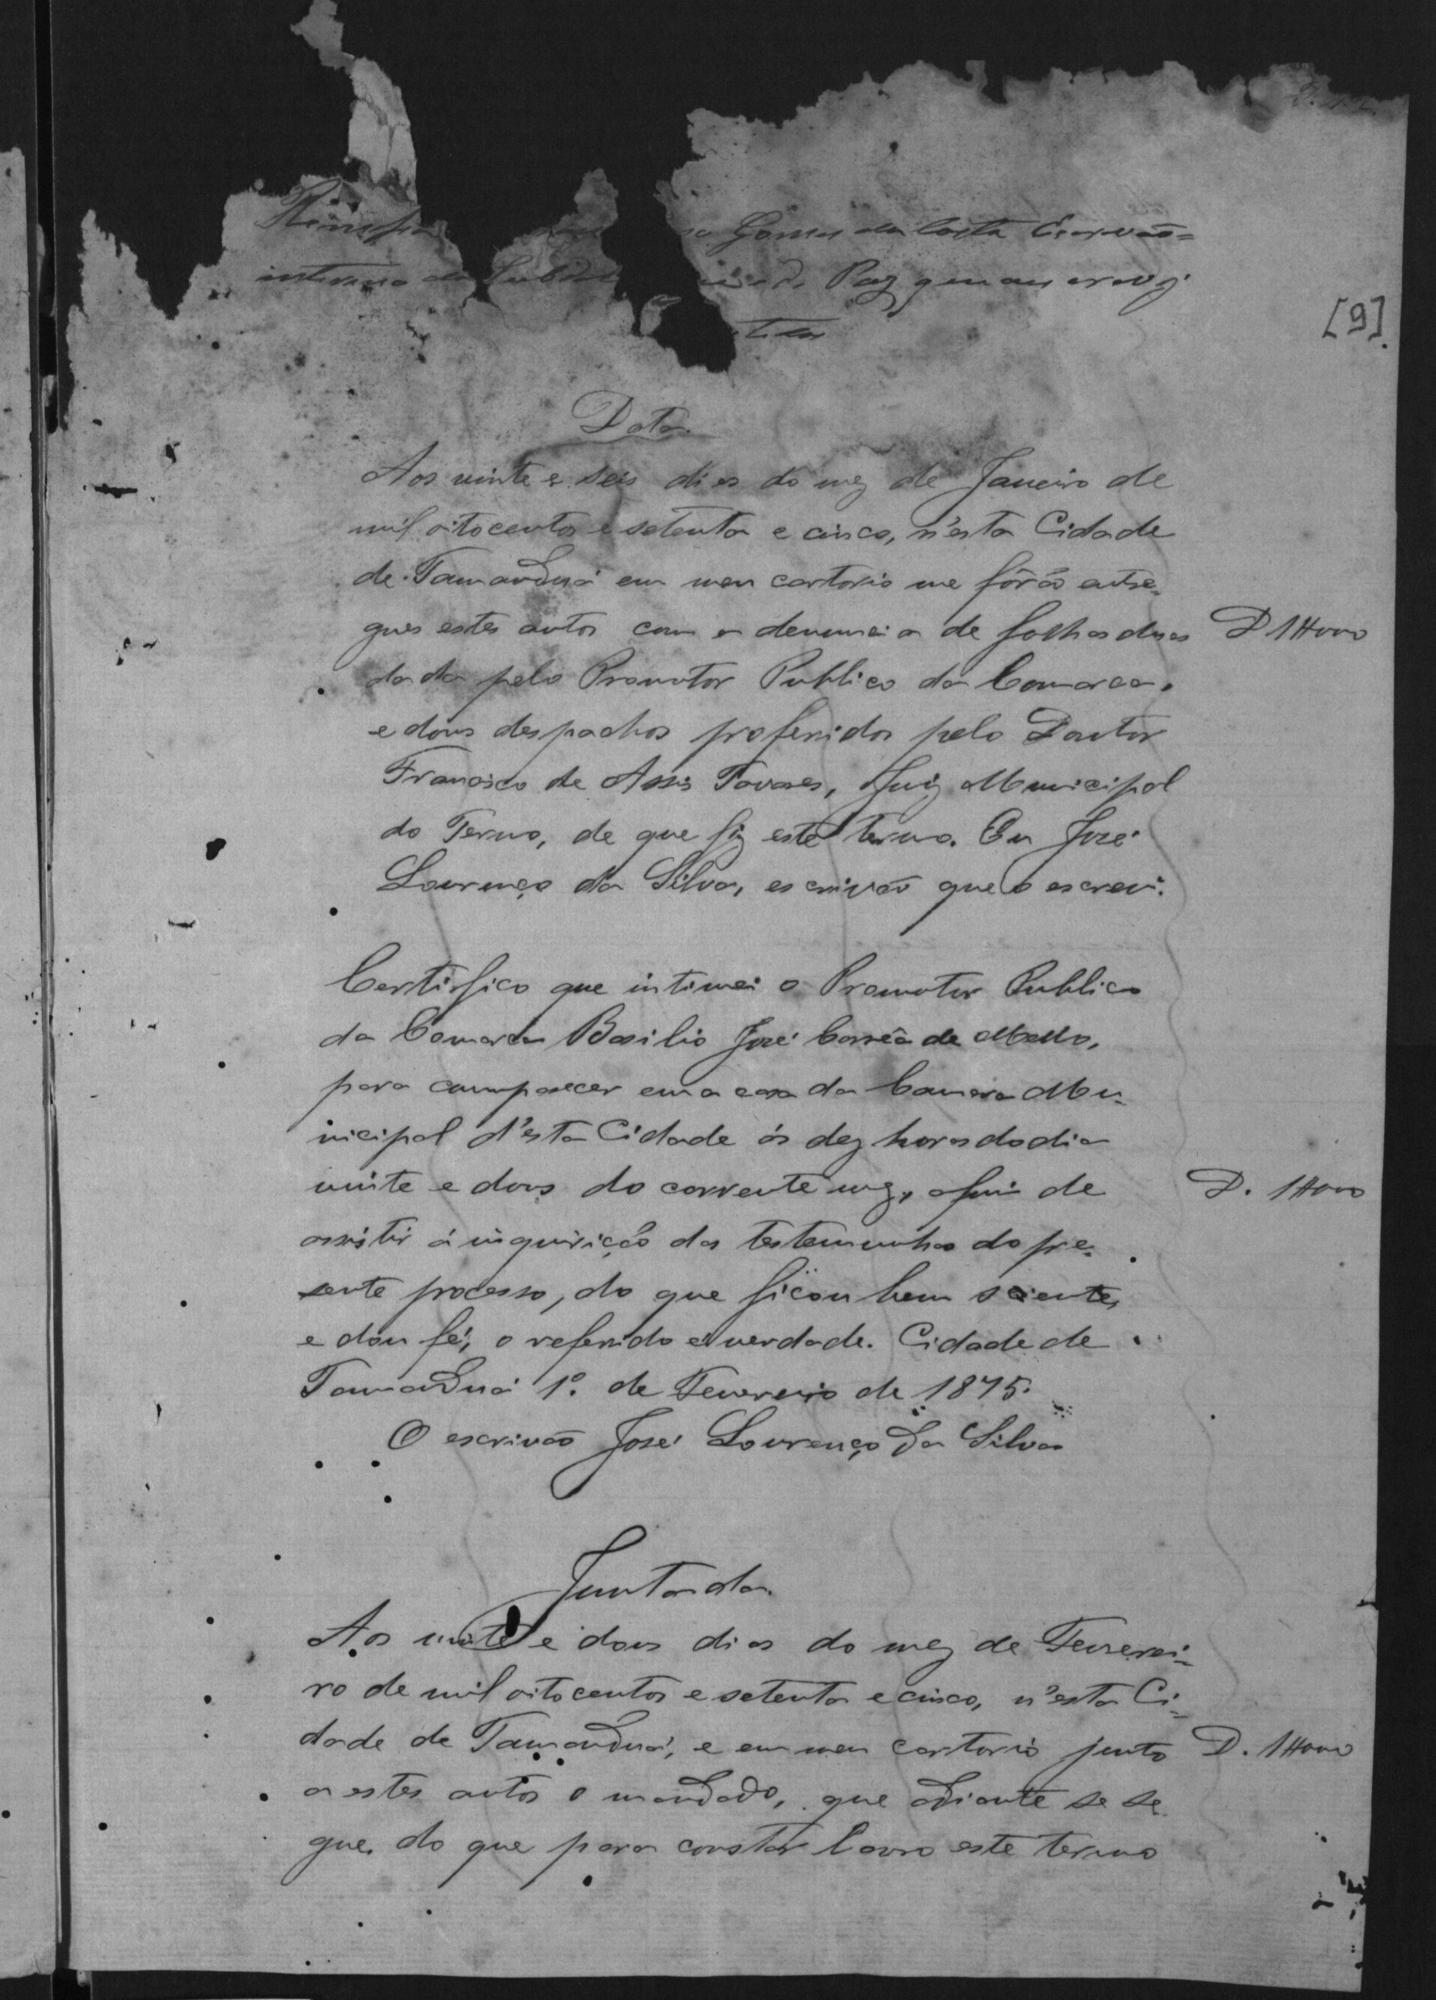 [9]
Gomes da Costa Escrivão
interino da Paz que au escrevj
Data
Aos vinte e seis dias do mez de Janeiro de
mil oitocentos e setenta e cinco, n'esta Cidade
de Tamanduá em meu cartorio me fôrão entre-
gues estes autos com a denuncia de folhas duas
dada pelo Promotor Publico da Comarca,
e dous despachos proferidos pelo Doutor
Francisco de Assis Tavares, Juiz Municipal
do Termo, de que fiz este termo. Eu José
Lourenço da Silva, escrivão que o escrevi.
Certifico que intimei o Promotor Publico
da Comarca Basilio José Corrêa de Mello,
para comparecer em a casa da Camera Mu-
nicipal d'esta Cidade ás dez horas do dia
vinte e dous do corrente mez, afim de
assistir á inquirição das testemunhas do pre-
sente processo, do que ficou bem sciente,
e dou fé; o referido é verdade. Cidade de
Tamanduá 1º. de Fevereiro de 1875.
O escrivão José Lourenço da Silva
Juntada
Aos vinte e dous dias do mez de Feverei-
ro de mil oitocentos e setenta e cinco, n'esta Ci-
dade de Tamanduá, e em meu cartorio junto
a estes autos o mandado, que adiante se se-
gue, do que para constar lavro este termo